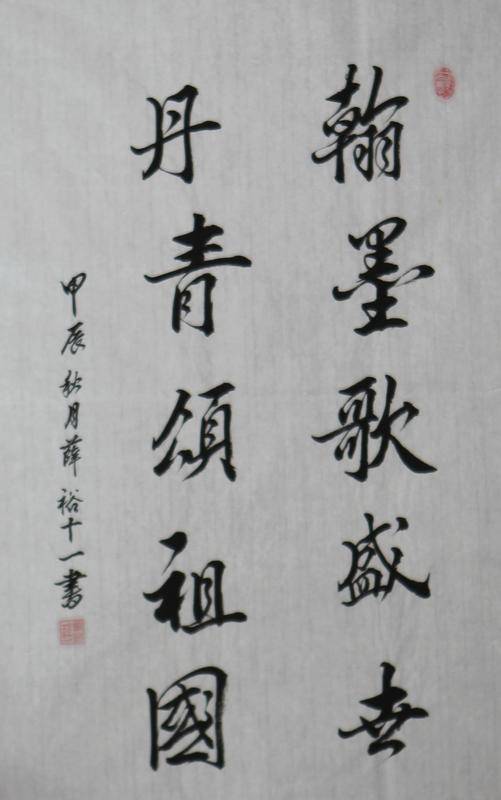 翰墨歌盛世
丹青頌祖國
甲辰秋月薛裕十一書